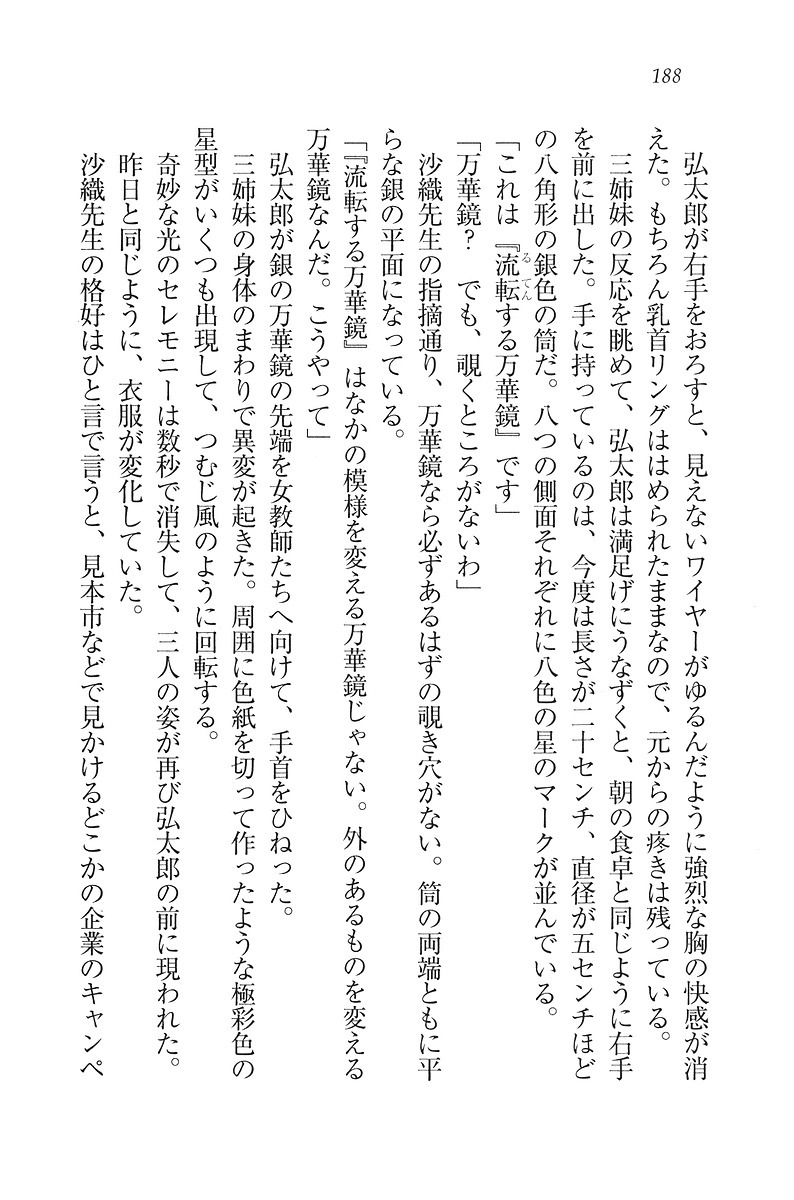 188
弘太郎が右手をおろすと、見えないワイヤーがゆるんだように強烈な胸の快感が消
えた。もちろん乳首リングははめられたままなので、元からの疼きは残っている。
三姉妹の反応を眺めて、弘太郎は満足げにうなずくと、朝の食卓と同じように右手
を前に出した。手に持っているのは、今度は長さが二十センチ、直径が五センチほど
の八角形の銀色の筒だ。八つの側面それぞれに八色の星のマークが並んでいる。
「これは『流転する万華鏡』です」
るてん
「万華鏡？　でも、覗くところがないわ」
沙織先生の指摘通り、万華鏡なら必ずあるはずの覗き穴がない。筒の両端ともに平
らな銀の平面になっている。
「『流転する万華鏡』はなかの模様を変える万華鏡じゃない。外のあるものを変える
万華鏡なんだ。こうやって」
弘太郎が銀の万華鏡の先端を女教師たちへ向けて、手首をひねった。
三姉妹の身体のまわりで異変が起きた。周囲に色紙を切って作ったような極彩色の
星型がいくつも出現して、つむじ風のように回転する。
奇妙な光のセレモニーは数秒で消失して、三人の姿が再び弘太郎の前に現われた。
昨日と同じように、衣服が変化していた。
沙織先生の格好はひと言で言うと、見本市などで見かけるどこかの企業のキャンペ